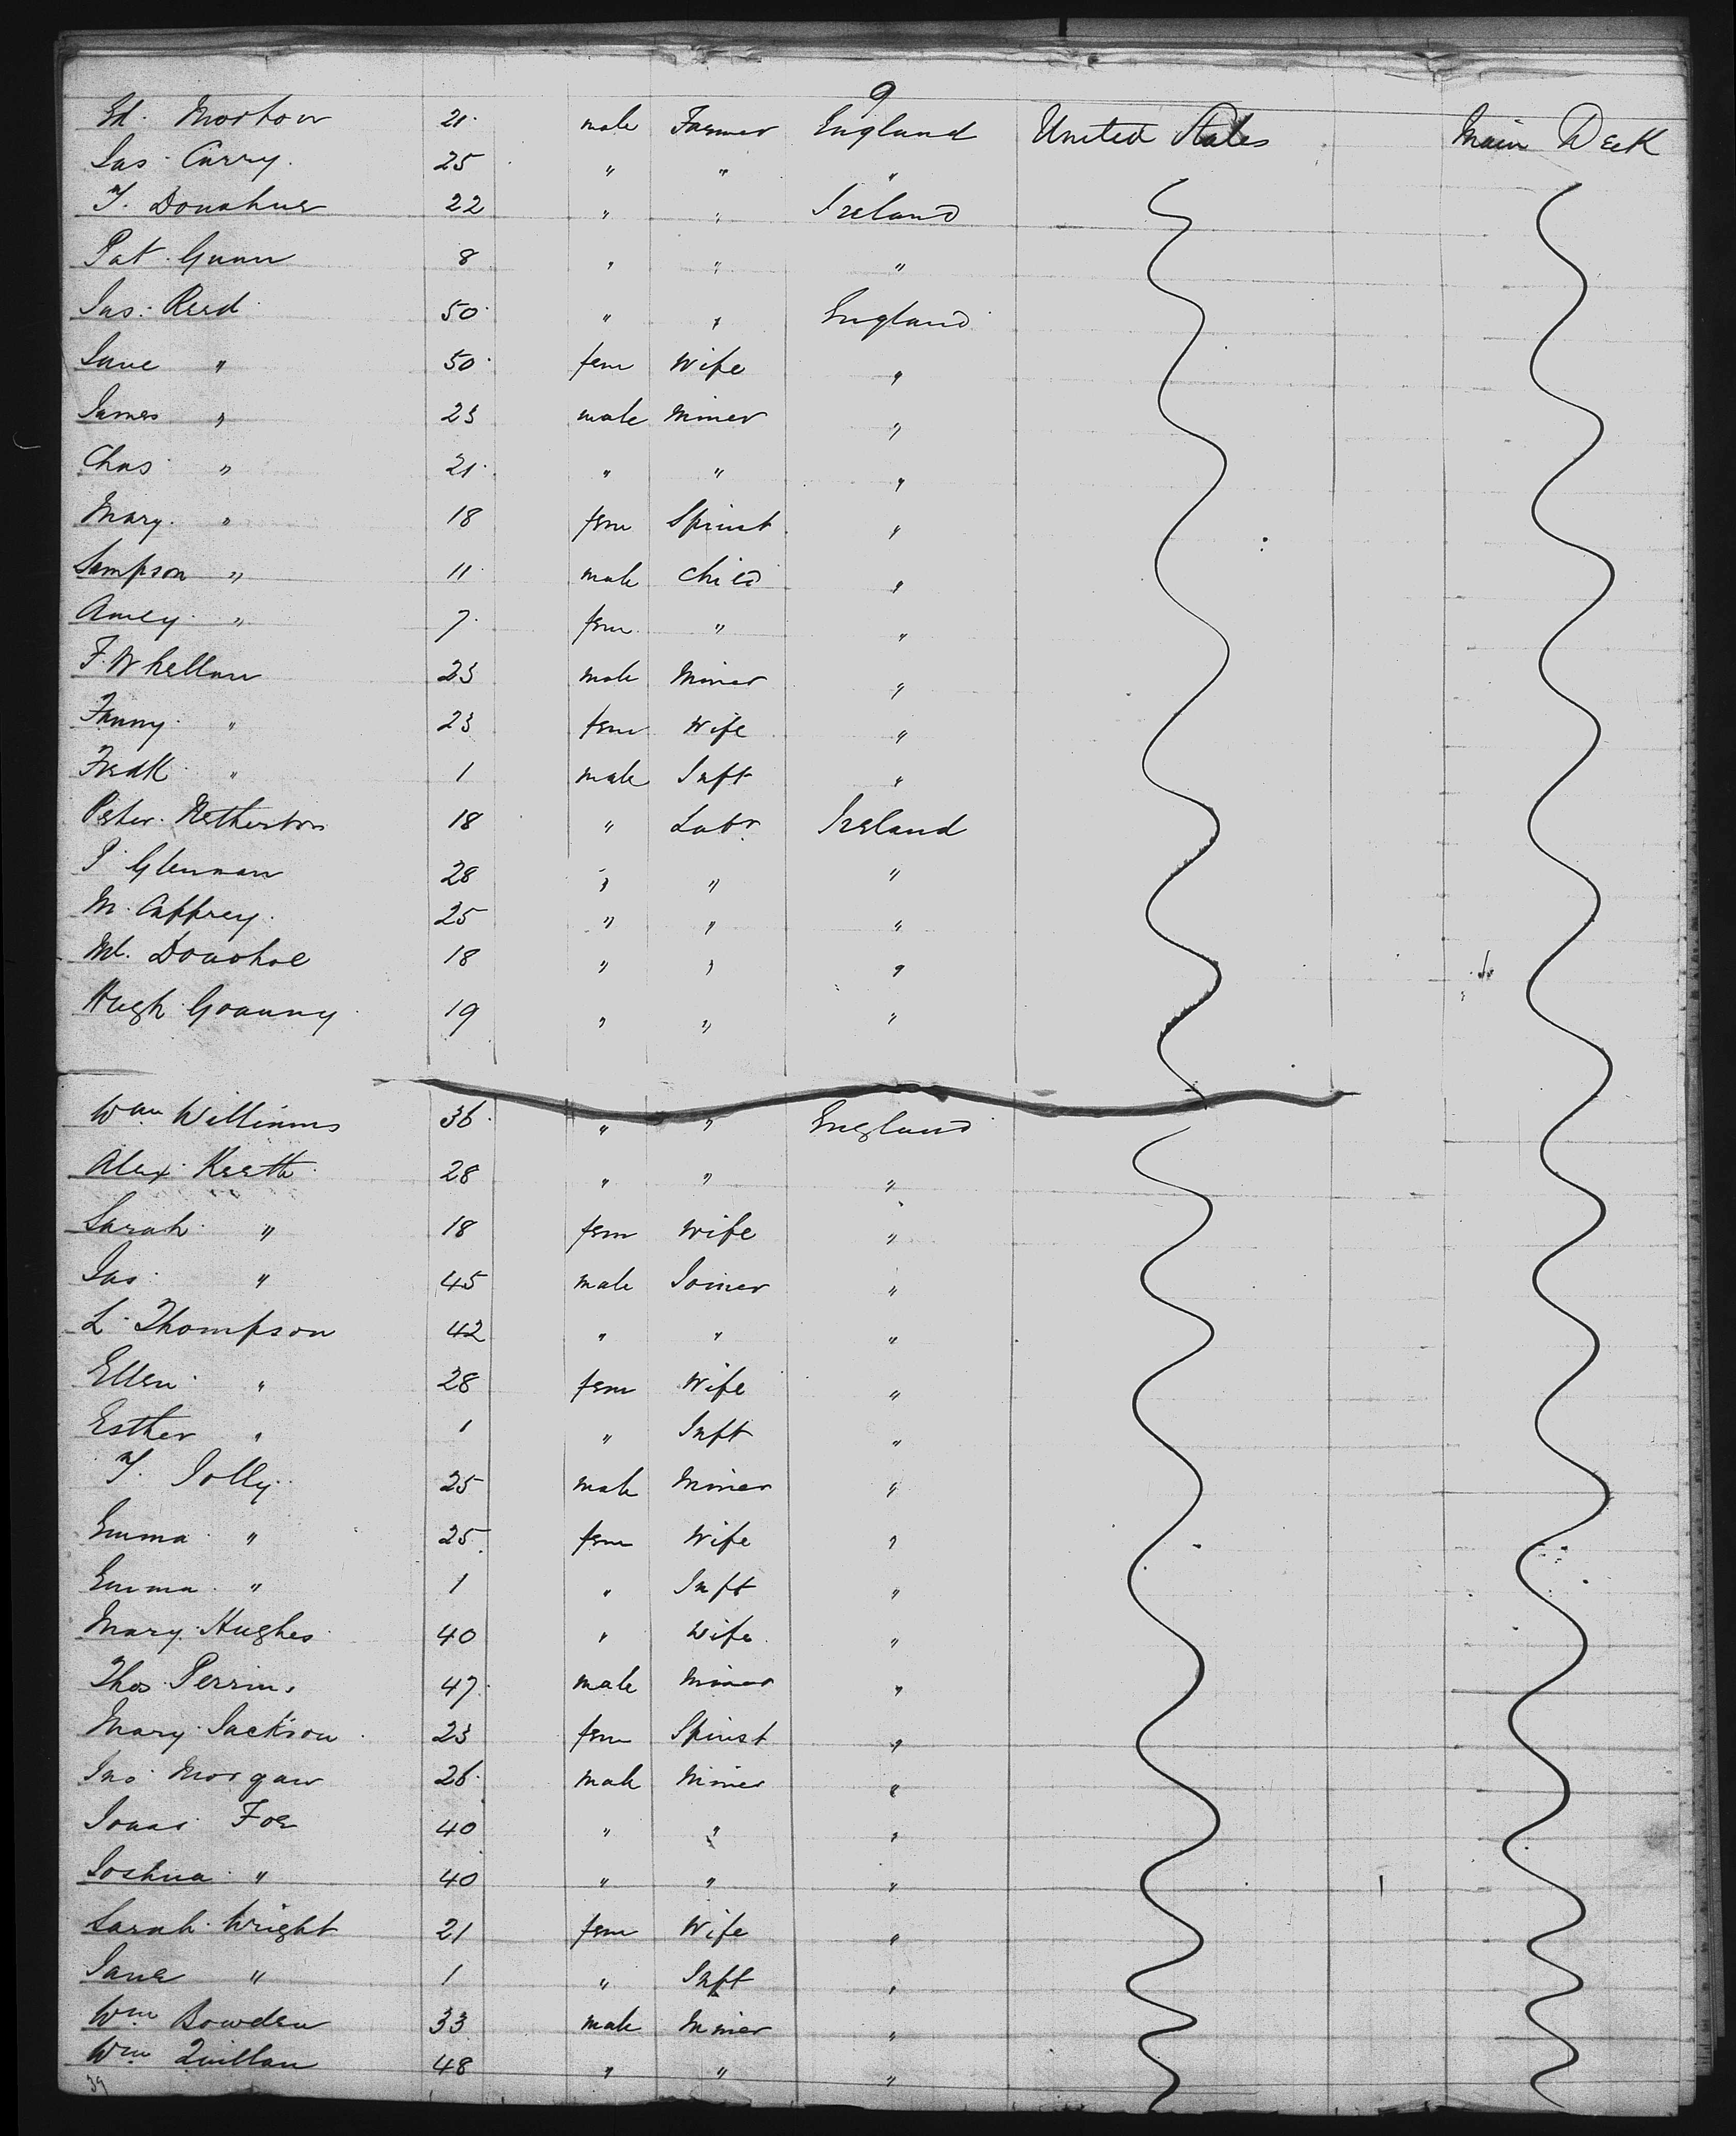 9
Ed. Morton 21 male Farmer England United States Main Deck
Jas. Curry 25 " " "
T. Donahue 22 " " Ireland
Pat Gunn 8 " " "
Jas. Reed 50 " " England
Jane " 50 fem Wife "
James " 23 male Miner "
Chas " 21 " " "
Mary " 18 fem Spinst "
Sampson " 11 male Child "
Amey " 7 fem " "
F. Whellan 23 male Miner "
Fanny " 23 fem Wife "
Fredk " 1 male Inft "
Peter Netherton 18 " Labr Ireland
P Glennan 28 " " "
M. Caffrey 25 " " "
Ml. Donohoe 18 " " "
Hugh 19 " " "
Wm Williams 36 " " England
Alex Keeth 28 " " "
Sarah " 18 fem Wife "
Jas " 45 male Joiner "
L. Thompson 42 " " "
Ellen " 28 fem Wife "
Esther " 1 " Inft "
T. Jolly 25 male Miner "
Emma " 25 fem Wife "
Emma " 1 " Inft "
Mary Hughes 40 " Wife "
Thos Perrins 47 male Miner "
Mary Jackson 23 fem Spinst "
Jno Morgan 26 male Miner "
Jonas Foe 40 " " "
Joshua " 40 " " "
Sarah Wright 21 fem Wife "
Jane " 1 " Inft "
Wm Bowden 33 male Miner "
Wm Quillan 48 " " "
39